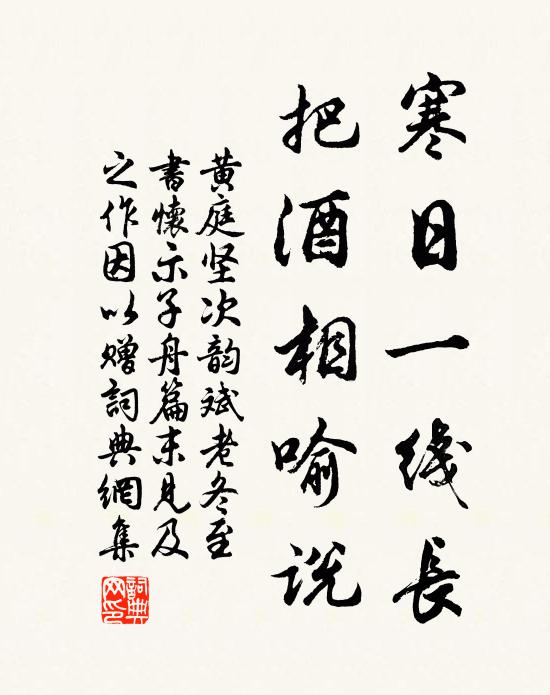 寒日一线長
把酒相喻说
黄庭坚次韵斌老冬至
書懷示子舟篇末見及
之作因以贈詞典網集
詞典
网印